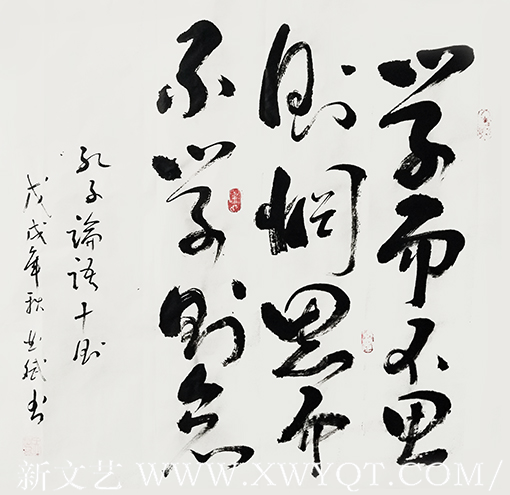 学而不思
则惘思而
不学则怠
孔子論語十则
戊戌年秋斌书
新文艺 WWW.XWYQT.COM/